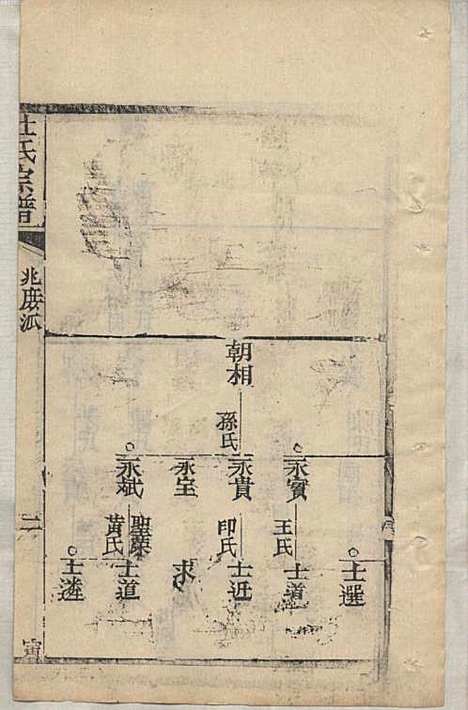 杜氏宗譜
兆庭派
二
朝相
孫氏
永賓
永貴
永宝
永斌
王氏
印氏
黄氏
士選
士道
士近
求
士道
士遴